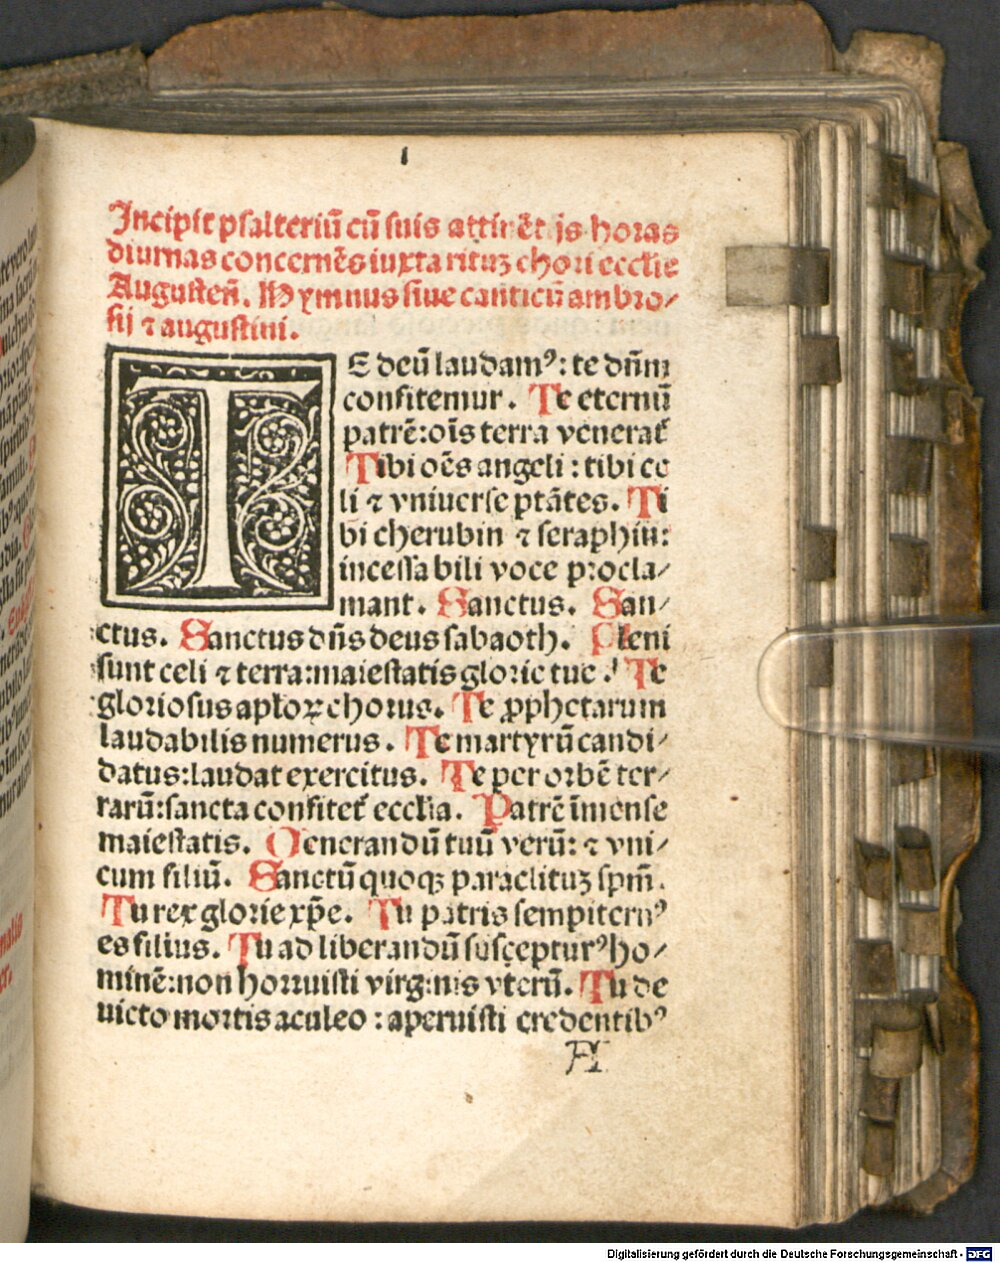 1
Incipit psalteriū cū suis attinētijs horas
diurnas concernēs iuxta rituꝫ chori ecclie
Augusteñ. Hymnus siue canticū ambro⸗
sij ⁊ augustini.
TE deū laudamꝰ: te dn̄m
confitemur. Te eternū
patrē: oīs terra venerat̄
Tibi oēs angeli: tibi ce
li ⁊ vniuerse ptātes. Ti
bi cherubin ⁊ seraphin:
incessabili voce procla⸗
mant. Sanctus. San⸗
ctus. Sanctus dn̄s deus sabaoth. Pleni
sunt celi ⁊ terra: maiestatis glorie tue. Te
gloriosus aplōꝝ chorus. Te ꝓphetarum
laudabilis numerus. Te martyrū candi⸗
datus: laudat exercitus. Te per orbē ter⸗
rarū: sancta confitet̄ ecclia. Patrē īmense
maiestatis. Uenerandū tuū verū: ⁊ vni⸗
cum filiū. Sanctū quoqꝫ paraclituꝫ spm̄.
Tu rex glorie xp̄e. Tu patris sempiternꝰ
es filius. Tu ad liberandū suscepturꝰ ho⸗
minē: non horruisti virginis vterū. Tu de
uicto mortis aculeo: aperuisti credentibꝰ
A
Digitalisierung gefördert durch die Deutsche Forschungsgemeinschaft - DFG